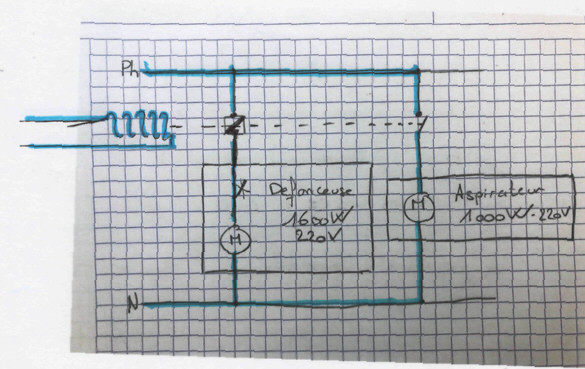 Ph
Défonceuse
1600W
220V
M
Aspirateur
M
1000W-220V
N